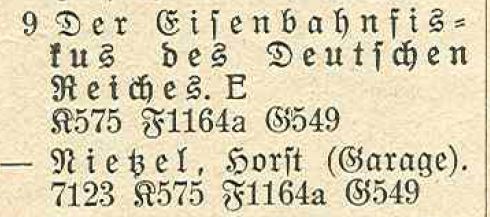 9 Der Eiſenbahnfis=
kus des Deutſchen
Reiches. E
K575 F1164a G549
— Nietzel, Horſt (Garage).
7123 K575 F1164a G549